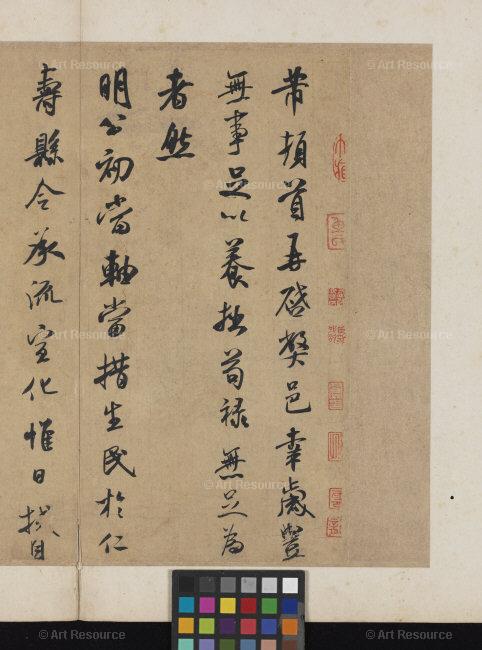 芾頓首再啓弊邑幸歲豐
無事足以養拙苟祿無足為
者然
明公初當軸當措生民於仁
壽縣令承流宣化惟日拭目
© Art Resource
© Art Resource
© Art Resource
© Art Resource
© Art Resource
© Art Resource
© Art Resource
© Art Resource
© Art Resource
© Art Resource